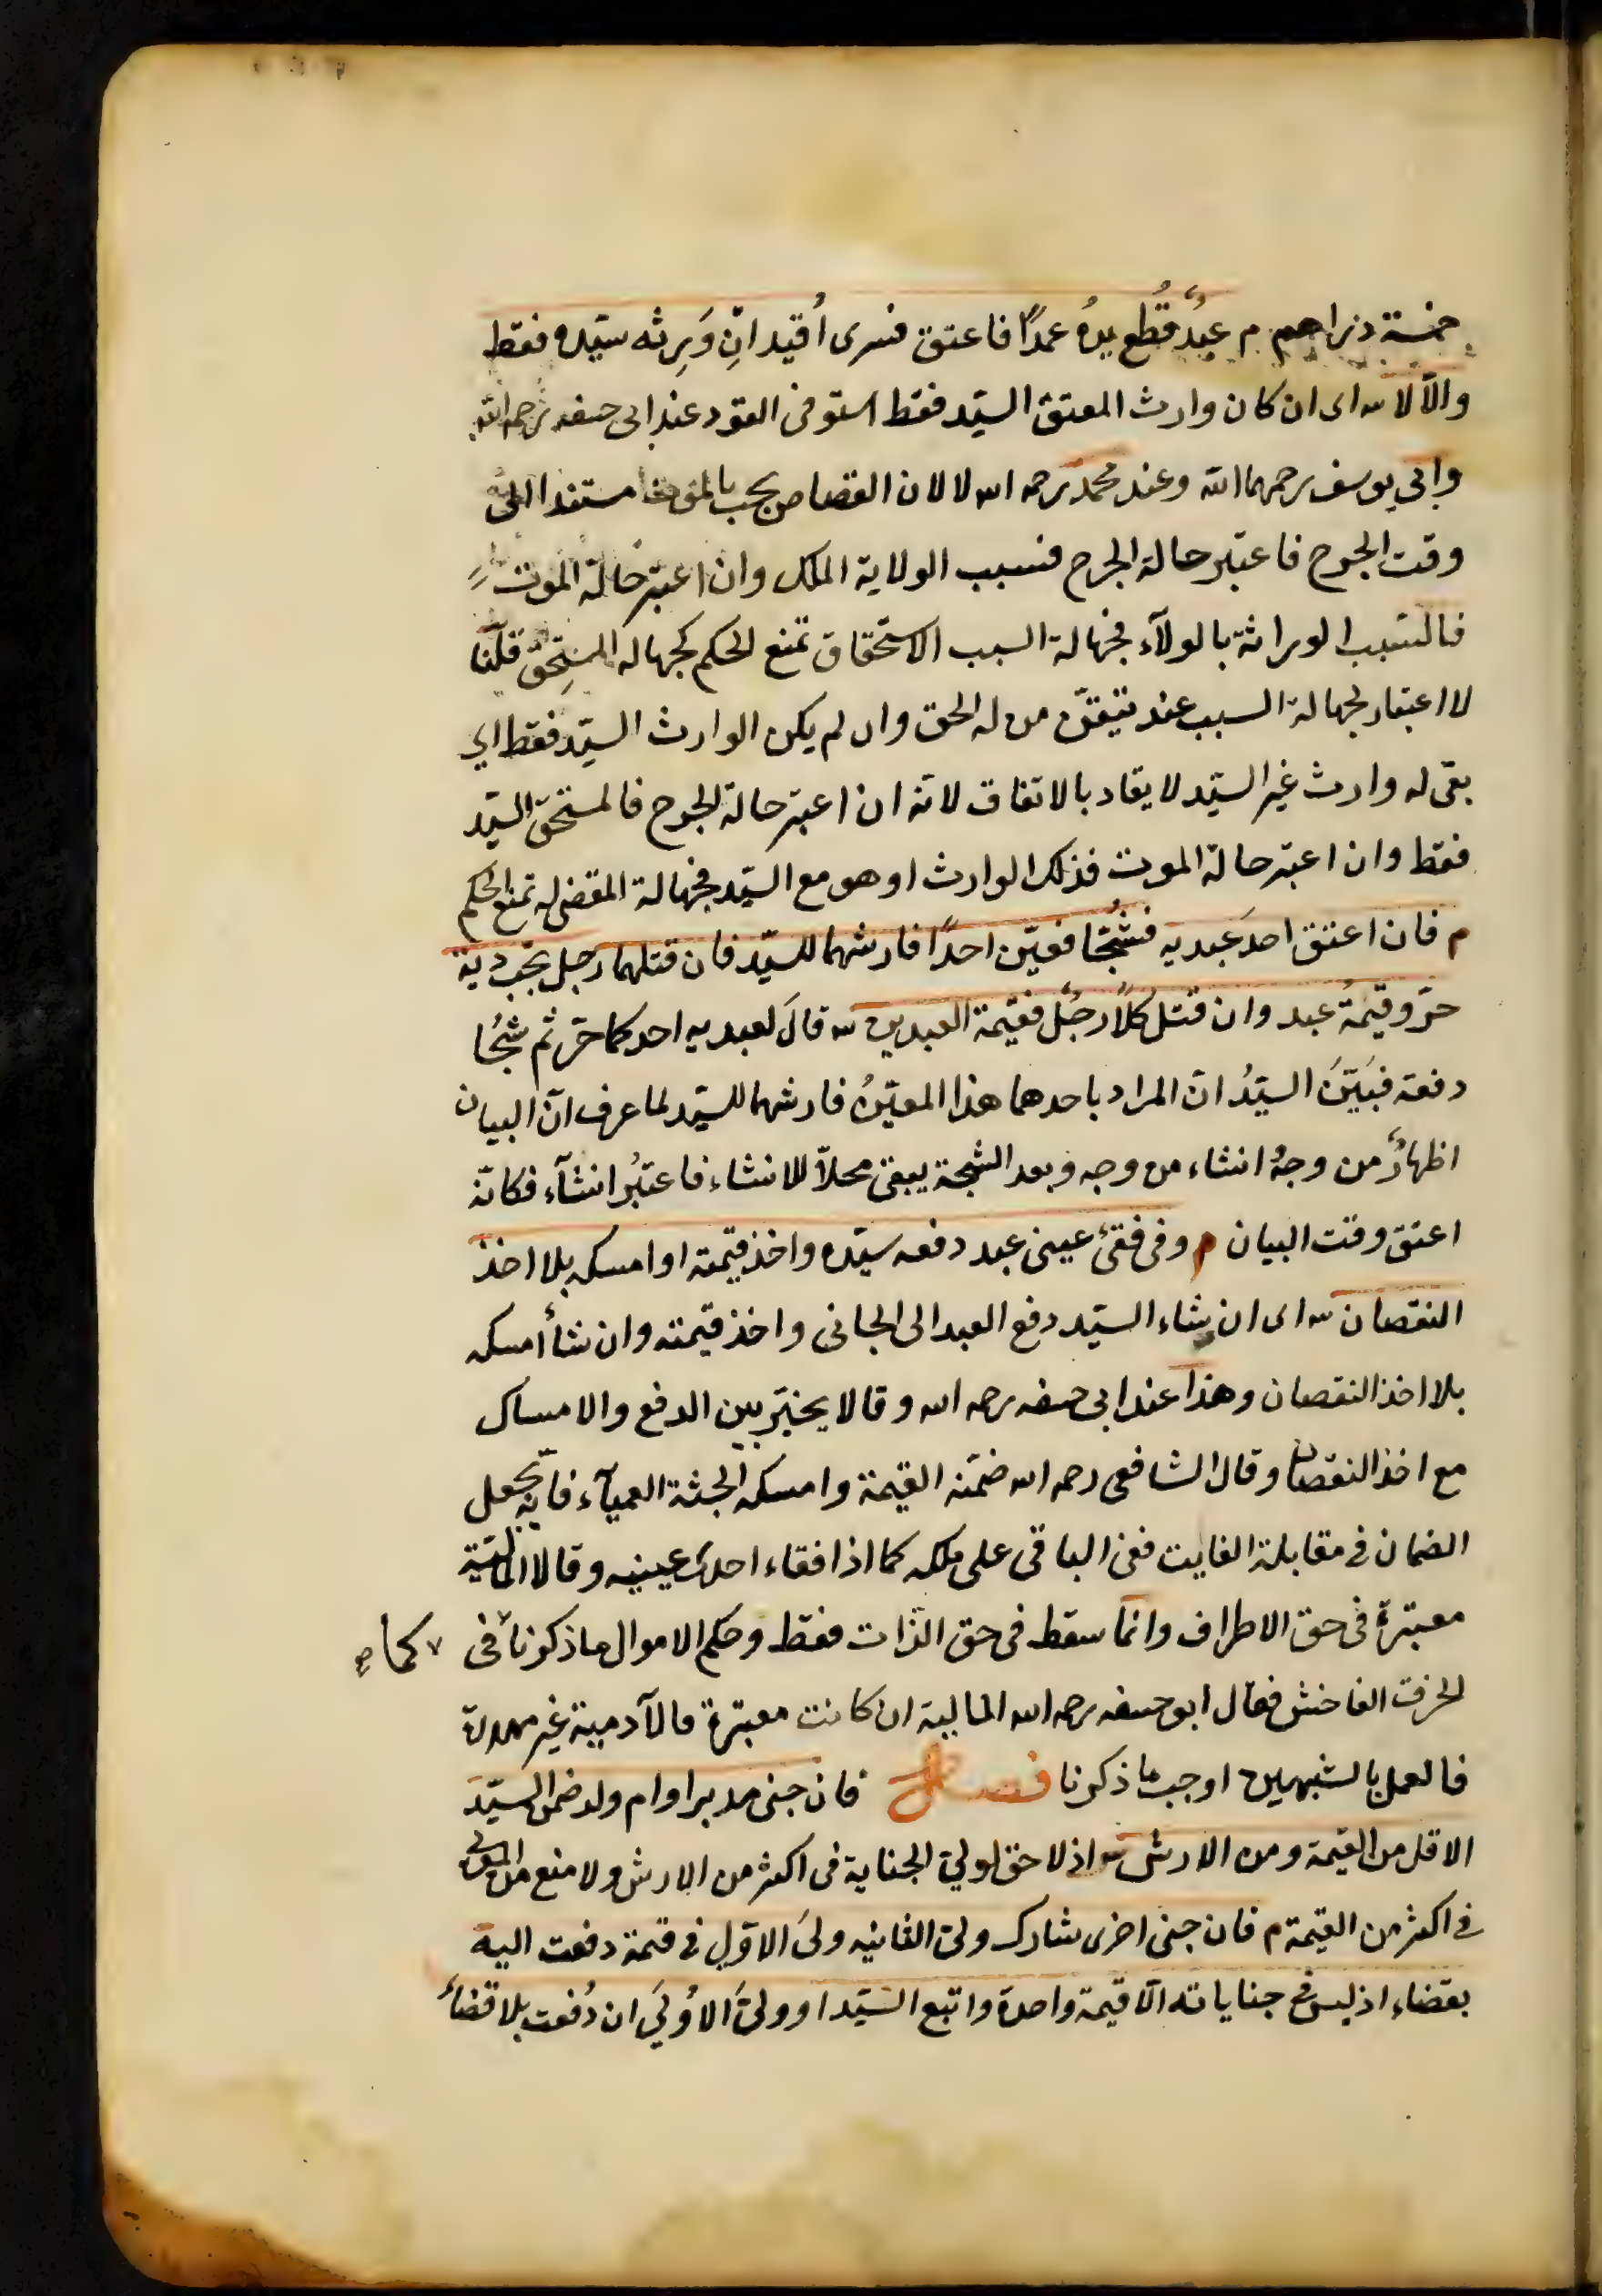 خمسة دراهم م عبدٌ قُطع يدهُ عمدًا فاعتق فسرى أُقيد انْ وَرِثه سيّده فقط
والّا لا س اى ان كان وارث المعتق السيّد فقط استوفى القود عند ابى حنيفه رحمه الله
وابي يوسف رحمهما الله وعند محمد رحمه الله لا لان القصاص يجب بالموت مستندا الى
وقت الجرح فاعتبر حالة الجرح فسبب الولاية الملك وان اعتبر حالة الموت
فالسّبب الوراثة بالولآء فجهالة السبب الاستحقاق تمنع الحكم كجهالة المستحِقّ قلنا
لا اعتبار لجهالة السبب عند تيقّن من له الحق وان لم يكن الوارث السيّد فقط اي
بقى له وارث غير السيّد لا يقاد بالاتفاق لانّه ان اعتبر حالة الجرح فالمستحق السيّد
فقط وان اعتبر حالة الموت فذلك الوارث او هو مع السيّد فجهالة المقضى له تمنع الحكم
م فان اعتق احدَ عَبديه فشُجّا فعيّن احدًا فارشهما للسيّد فان قتلهما رجل يجب دية
حرّ وقيمةُ عبد وان قتل كلًّا رجُلٌ فقيمة العبدين س قالَ لعبديه احدكما حرّ ثم شُجّا
دفعة فبيَّنَ السيّدُ انّ المراد باحدهما هذا المعيّنُ فارشهما للسيّد لما عرف انّ البيان
اظهارٌ من وجهٍ انشاء من وجه وبعد الشجة يبقى محلاّ للانشاء فاعتبُر انشآء فكانّه
اعتق وقت البيان م وفى فقئ عينى عبد دفعه سيّده واخذ قيمته او امسكه بلا اخذ
النقصان س اى ان شاء السيّد دفع العبد الى الجانى واخذ قيمته وان شأ امسكه
بلا اخذ النقصان وهذا عند ابى حنيفه رحمه الله وقالا يخيّر بين الدفع والامساك
مع اخذ النقصان وقال الشافعى رحمه الله ضمّنه القيمة وامسكه الجثة العميآء فانّه يجعل
الضمان فى مقابلة الفايت فبقى الباقى على ملكه كما اذا فقاء احدى عينيه وقالا الماليّة
معتبرة فى حق الاطراف وانّما سقط فى حق الذّات فقط وحكم الاموال ما ذكرنا فى كما صح
الخرق الفاحش فقال ابو حنيفه رحمه الله المالية ان كانت معتبرة فالآدمية غير مهدرة
فالعمل بالشبهين اوجب ما ذكرنا فصل فان جنى مدبر او ام ولد ضمن السيّد
الاقل من القيمة ومن الارش س اذ لا حق لولي الجناية فى اكثر من الارش ولا منع من المولى
فى اكثر من القيمة م فان جنى اخرى شارك ولىّ الثانيه ولىّ الاوّلى فى قيمة دفعت اليه
بقضاء اذ ليس فى جناياته الّا قيمة واحدة واتبع السّيّد او ولىّ الاُولىَ ان دُفعت بلا قضأ